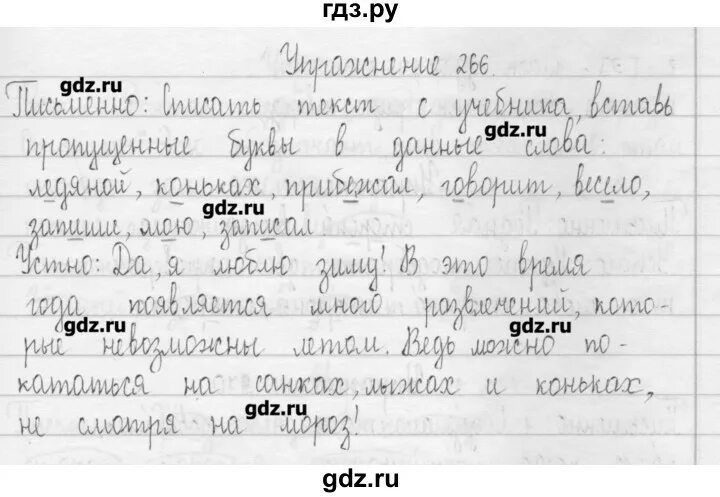 гдз.ру
Упражнение 266.
gdz.ru
Письменно: Списать текст с учебника, вставь
gdz.ru
пропущенные буквы в данные слова:
ледяной, коньках, прибежал, говорит, весело,
gdz.ru
запиши, мою, записал
Устно: Да, я люблю зиму! В это время
года появляется много развлечений, кото-
gdz.ru gdz.ru
рые невозможны летом. Ведь можно по-
кататься на санках, лыжах и коньках,
gdz.ru
не смотря на мороз!
gdz.ru